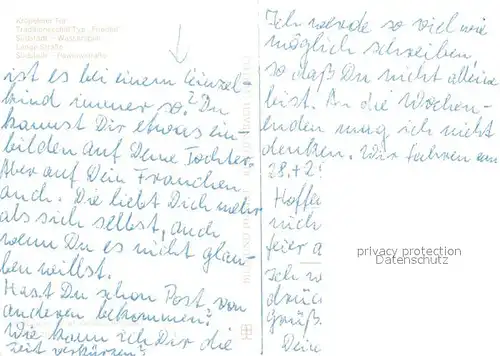 Kröpeliner Tor
Traditionsschiff Typ „Frieden“
Südstadt –
Lange Straße
Südstadt –
ist es bei einem Einzel-
kind immer so? Du
kannst Dir etwas ein-
bilden auf Deine Tochter.
Aber auf Dein Frauchen
auch. Die liebt Dich mehr
als sich selbst, auch
wenn Du es nicht glau-
ben willst.
Hast Du schon Post von
anderen bekommen?
Wie kann ich Dir die
Zeit verkürzen?
Ich werde so viel wie
möglich schreiben,
so daß Du nicht alleine
bist. An die Wochen-
enden mag ich nicht
denken. Wir fahren am
28.+2
Hoffe
nich
feier a
Ich w
drüc
Grüß
Deine
privacy protection
Datenschutz